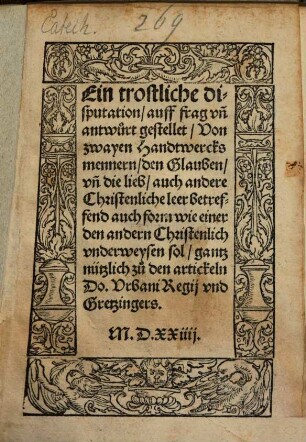 Catech. 269
Ein trostliche di-
sputation/ auff frag vñ
antwürt gestellet/ Von
zwayen Handtwercks
mennern/ den Glauben/
vñ die lieb/ auch andere
Christenliche leer betref-
fend auch form wie einer
den andern Christenlich
vnderweysen sol/ gantz
nützlich zů den artickeln
Do. Vrbani Regij vnd
Gretzingers.
M. D. XXiiij.